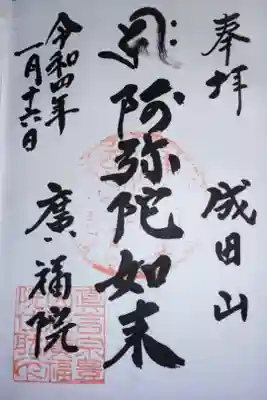 奉拝
成田山
阿弥陀如来
廣福院
令和四年
一月十六日